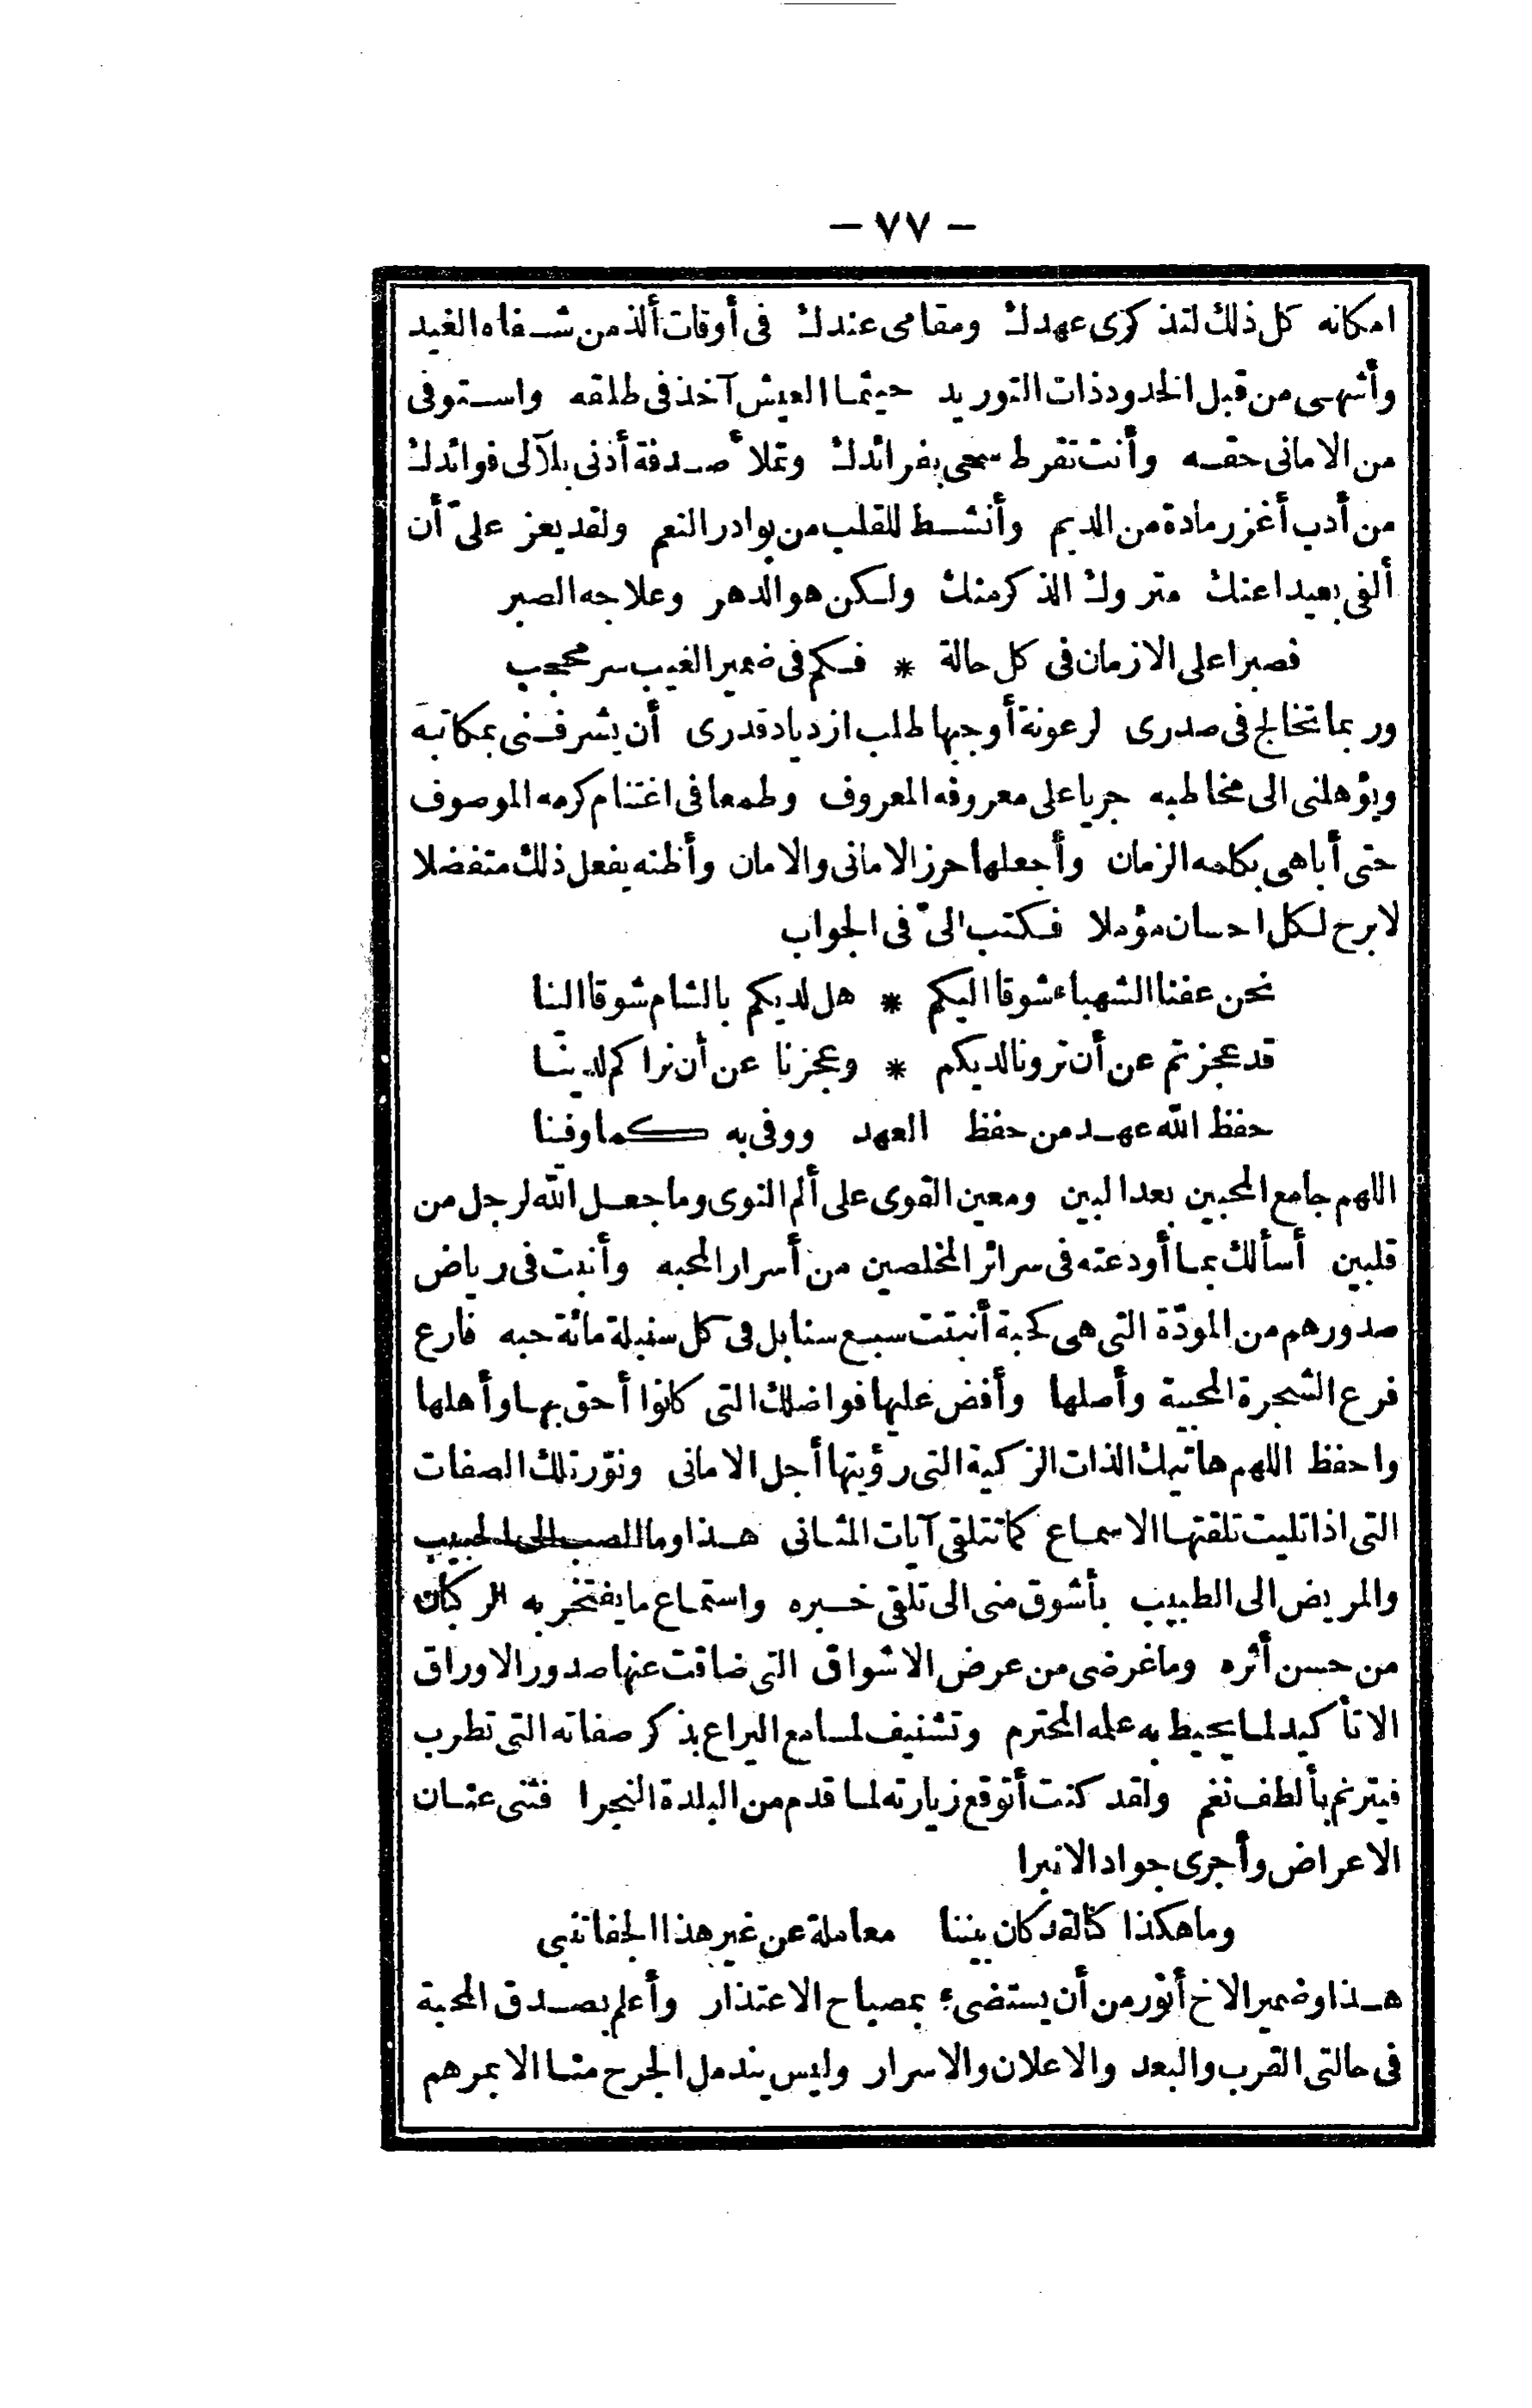 — ٧٧ —
امكانه كل ذلك لتذكرى عهدك ومقامى عندك فى أوقات ألذ من شفاه الغيد
وأشهى من قبل الخدود ذات التوريد حيثما العيش آخذ فى طلقه واستوفى
من الامانى حقه وأنت تقرط سمعى بفرائدك وتملأ صدفة أذنى بلآلى فوائدك
من أدب أغزر مادة من الديم وأنشط للقلب من بوادر النعم ولقد يعز علىّ أن
ألفى بعيدا عنك متروك الذكر منك ولكن هو الدهر وعلاجه الصبر
فصبرا على الازمان فى كل حالة * فكم فى ضمير الغيب سر محجب
وربما تخالج فى صدرى لرعونة أوجبها طلب ازدياد قدرى أن يشرفنى بمكاتبه
ويؤهلنى الى مخاطبه جريا على معروفه المعروف وطمعا فى اغتنام كرمه الموصوف
حتى أباهى بكلمه الزمان وأجعلها حرز الامانى والامان وأظنه يفعل ذلك متفضلا
لا برح لكل احسان مؤملا فكتب الىّ فى الجواب
نحن عفنا الشهباء شوقا اليكم * هل لديكم بالشام شوقا الينا
قد عجزتم عن أن ترونا لديكم * وعجزنا عن أن نراكم لدينا
حفظ الله عهد من حفظ العهد ووفى به كما وفينا
اللهم جامع المحبين بعد البين ومعين القوى على ألم النوى وما جعل الله لرجل من
قلبين أسألك بما أودعته فى سرائر المخلصين من أسرار المحبه وأنبت فى رياض
صدورهم من المودّة التى هى كحبة أنبتت سبع سنابل فى كل سنبلة مائة حبه فارع
فرع الشجرة المحبية وأصلها وأفض عليها فواضلك التى كانوا أحق بها وأهلها
واحفظ اللهم هاتيك الذات الزكية التى رؤيتها أجل الامانى ونوّر تلك الصفات
التى اذا تليت تلقتها الاسماع كما تتلقى آيات المثانى هذا وما الصب الى الحبيب
والمريض الى الطبيب بأشوق منى الى تلقى خبره واستماع ما يفتخر به الركبان
من حسن أثره وما غرضى من عرض الاشواق التى ضاقت عنها صدور الاوراق
الا تأكيد لما يحيط به علمه المحترم وتشنيف لمسامع اليراع بذكر صفاته التى تطرب
فيترنم بألطف نغم ولقد كنت أتوقع زيارته لما قدم من البلدة النجرا فثنى عنان
الاعراض وأجرى جواد الانبرا
وما هكذا كنا لقد كان بيننا معاملة عن غير هذا الجفا تنبى
هذا وضمير الاخ أنور من أن يستضىء بمصباح الاعتذار وأعلم بصدق المحبة
فى حالتى القرب والبعد والاعلان والاسرار وليس يندمل الجرح منا الا بمرهم